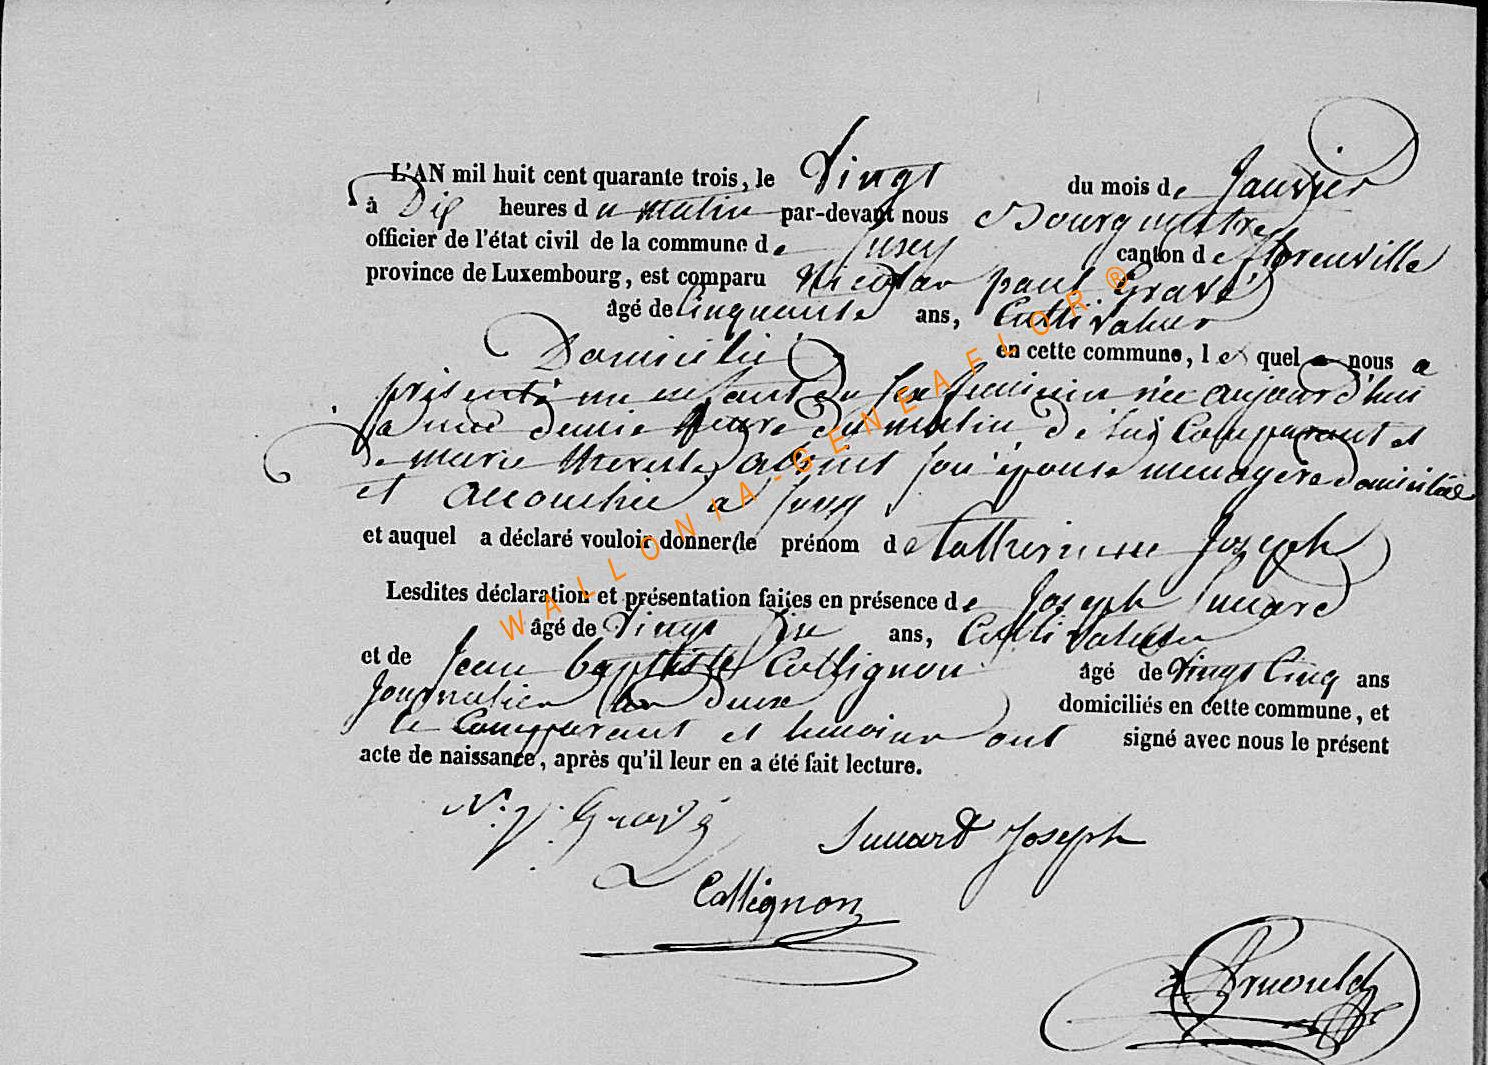 L'AN mil huit cent quarante trois, le Vingt du mois de Janvier
à Dix heures du matin par-devant nous Bourgmestre
officier de l'état civil de la commune de canton de florenville
province de Luxembourg, est comparu Nicolas paul Gravé
âgé de Cinquante ans, Cultivateur
Domicilié en cette commune, lequel nous a
présenté un enfant du sexe feminin née aujourd'hui
a une demie heure du matin, de lui Comparant et
de marie therese son épouse menagere domiciliée
et accouchée a
et auquel a déclaré vouloir donner le prénom de Catherinne Joseph
Lesdites déclaration et présentation faites en présence de Joseph
âgé de Vingt ans, Cultivateur
et de Jean baptiste Collignon âgé de Vingt Cinq ans
Journalier les deux domiciliés en cette commune, et
le Comparant et temoins ont signé avec nous le présent
acte de naissance, après qu'il leur en a été fait lecture.
N. p. Gravé
Joseph
Collignon
WALLONIA-GENEAFLOR®